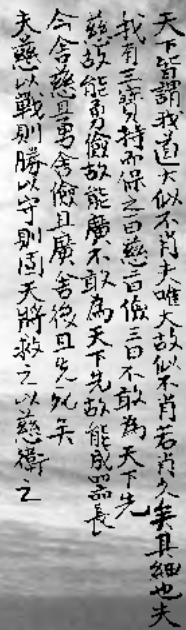 天下皆謂我道大似不肖夫唯大故似不肖若肖久矣其細也夫
我有三寶持而保之一曰慈二曰儉三曰不敢為天下先
慈故能勇儉故能廣不敢為天下先故能成器長
今舍慈且勇舍儉且廣舍後且先死矣
夫慈以戰則勝以守則固天將救之以慈衛之